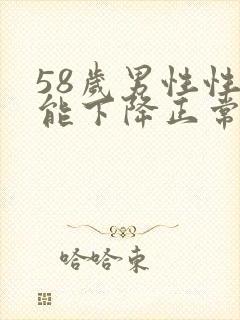 58歲男性性
能下降正常
哈哈東